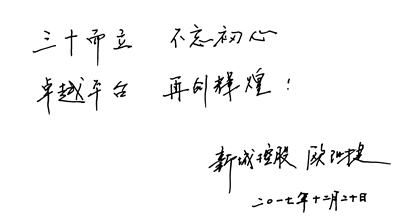 三十而立 不忘初心
卓越平台 再创辉煌！
新城控股 欧阳捷
二〇一七年十二月二十日